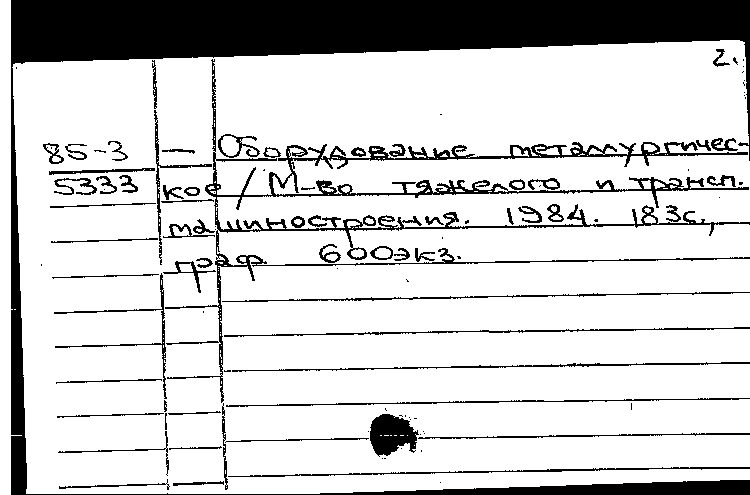 2.
85-3 — Оборудование металлургичес-
5333 кое / М-во тяжелого и трансп.
машиностроения. 1984. 183с.,
граф. 600экз.